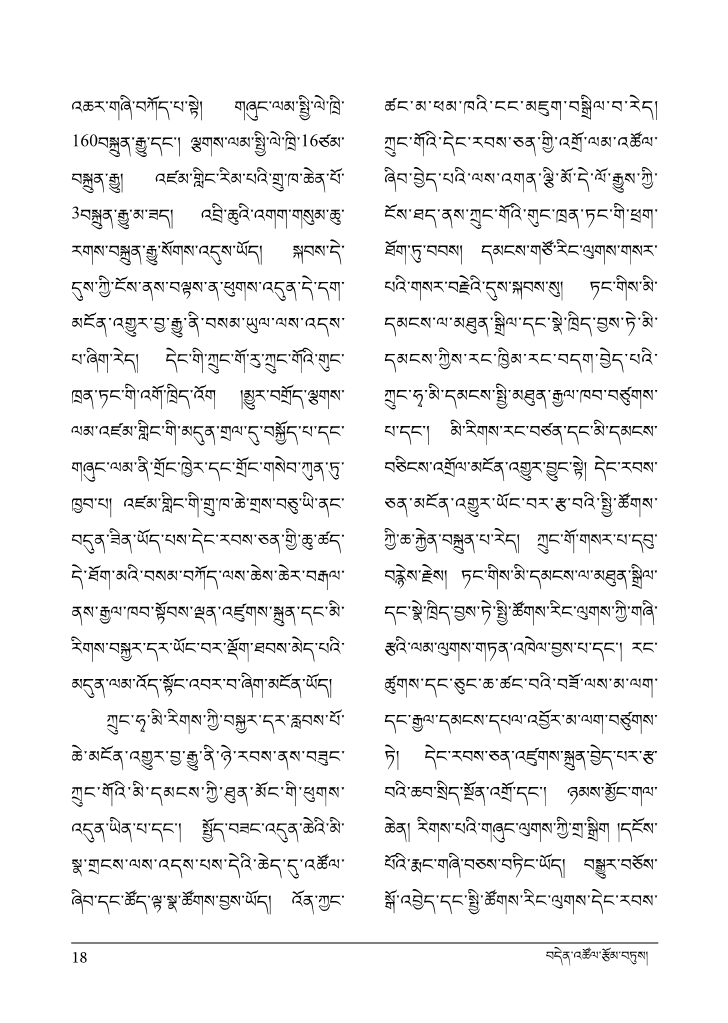 འཆར་གཞི་བཀོད་པ་སྟེ། གཞུང་ལམ་སྤྱི་ལེ་ཁྲི་
160བསྐྲུན་རྒྱུ་དང་། ལྕགས་ལམ་སྤྱི་ལེ་ཁྲི་16ཙམ་
བསྐྲུན་རྒྱུ། འཛམ་གླིང་རིམ་པའི་གྲུ་ཁ་ཆེན་པོ་
3བསྐྲུན་རྒྱུ་མ་ཟད། འབྲི་ཆུའི་འགག་གསུམ་ཆུ་
རགས་བསྐྲུན་རྒྱུ་སོགས་འདུས་ཡོད། སྐབས་དེ་
དུས་ཀྱི་ངོས་ནས་བལྟས་ན་ཕུགས་འདུན་དེ་དག་
མངོན་འགྱུར་བྱ་རྒྱུ་ནི་བསམ་ཡུལ་ལས་འདས་
པ་ཞིག་རེད། དེང་གི་ཀྲུང་གོ་རུ་ཀྲུང་གོའི་གུང་
ཁྲན་ཏང་གི་འགོ་ཁྲིད་འོག །མྱུར་བགྲོད་ལྕགས་
ལམ་འཛམ་གླིང་གི་མདུན་གྲལ་དུ་བསྐྱོད་པ་དང་
གཞུང་ལམ་ནི་གྲོང་ཁྱེར་དང་གྲོང་གསེབ་ཀུན་ཏུ་
ཁྱབ་པ། འཛམ་གླིང་གི་གྲུ་ཁ་ཆེ་གྲས་བཅུ་ཡི་ནང་
བདུན་ཟིན་ཡོད་པས་དེང་རབས་ཅན་གྱི་ཆུ་ཚད་
དེ་ཐོག་མའི་བསམ་བཀོད་ལས་ཆེས་ཆེར་བརྒལ་
ནས་རྒྱལ་ཁབ་སྟོབས་ལྡན་འཛུགས་སྐྲུན་དང་མི་
རིགས་བསྐྱར་དར་ཡོང་བར་ལྡོག་ཐབས་མེད་པའི་
མདུན་ལམ་འོད་སྟོང་འབར་བ་ཞིག་མངོན་ཡོད།
ཀྲུང་ཧྭ་མི་རིགས་ཀྱི་བསྐྱར་དར་རླབས་པོ་
ཆེ་མངོན་འགྱུར་བྱ་རྒྱུ་ནི་ཉེ་རབས་ནས་བཟུང་
ཀྲུང་གོའི་མི་དམངས་ཀྱི་ཐུན་མོང་གི་ཕུགས་
འདུན་ཡིན་པ་དང་། སྤྱོད་བཟང་འདུན་ཆེའི་མི་
སྣ་གྲངས་ལས་འདས་པས་དེའི་ཆེད་དུ་འཚོལ་
ཞིབ་དང་ཚོད་ལྟ་སྣ་ཚོགས་བྱས་ཡོད། འོན་ཀྱང་
ཚང་མ་ཕམ་ཁའི་ངང་མཇུག་བསྒྲིལ་བ་རེད།
ཀྲུང་གོའི་དེང་རབས་ཅན་གྱི་འགྲོ་ལམ་འཚོལ་
ཞིབ་བྱེད་པའི་ལས་འགན་ལྕི་མོ་དེ་ལོ་རྒྱུས་ཀྱི་
ངོས་ཐད་ནས་ཀྲུང་གོའི་གུང་ཁྲན་ཏང་གི་ཕྲག་
ཐོག་ཏུ་བབས། དམངས་གཙོ་རིང་ལུགས་གསར་
པའི་གསར་བརྗེའི་དུས་སྐབས་སུ། ཏང་གིས་མི་
དམངས་ལ་མཐུན་སྒྲིལ་དང་སྣེ་ཁྲིད་བྱས་ཏེ་མི་
དམངས་ཀྱིས་རང་ཁྱིམ་རང་བདག་བྱེད་པའི་
ཀྲུང་ཧྭ་མི་དམངས་སྤྱི་མཐུན་རྒྱལ་ཁབ་བཙུགས་
པ་དང་། མི་རིགས་རང་བཙན་དང་མི་དམངས་
བཅིངས་འགྲོལ་མངོན་འགྱུར་བྱུང་སྟེ། དེང་རབས་
ཅན་མངོན་འགྱུར་ཡོང་བར་རྩ་བའི་སྤྱི་ཚོགས་
ཀྱི་ཆ་རྐྱེན་བསྐྲུན་པ་རེད། ཀྲུང་གོ་གསར་པ་དབུ་
བརྙེས་རྗེས། ཏང་གིས་མི་དམངས་ལ་མཐུན་སྒྲིལ་
དང་སྣེ་ཁྲིད་བྱས་ཏེ་སྤྱི་ཚོགས་རིང་ལུགས་ཀྱི་གཞི་
རྩའི་ལམ་ལུགས་གཏན་འཁེལ་བྱས་པ་དང་། རང་
ཚུགས་དང་ཅུང་ཆ་ཚང་བའི་བཟོ་ལས་མ་ལག་
དང་རྒྱལ་དམངས་དཔལ་འབྱོར་མ་ལག་བཙུགས་
ཏེ། དེང་རབས་ཅན་འཛུགས་སྐྲུན་བྱེད་པར་རྩ་
བའི་ཆབ་སྲིད་སྔོན་འགྲོ་དང་། ཉམས་མྱོང་གལ་
ཆེན། རིགས་པའི་གཞུང་ལུགས་ཀྱི་གྲ་སྒྲིག །དངོས་
པོའི་རྨང་གཞི་བཅས་བཏིང་ཡོད། བསྒྱུར་བཅོས་
སྒོ་འབྱེད་དང་སྤྱི་ཚོགས་རིང་ལུགས་དེང་རབས་
18
བདེན་འཚོལ་རྩོམ་བཏུས།